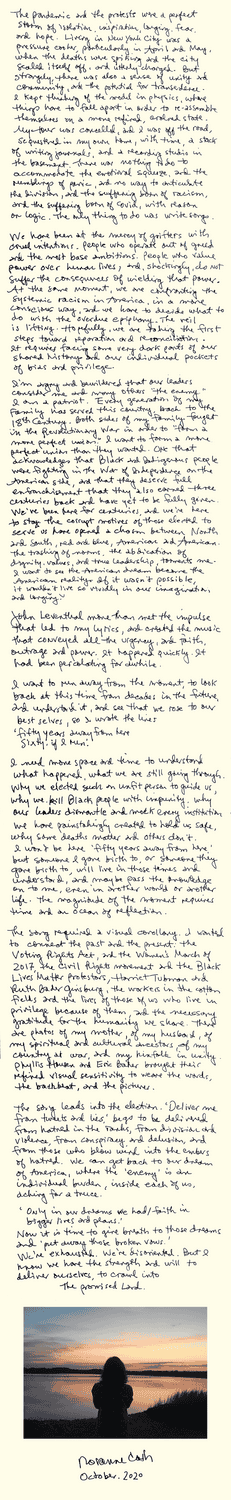 The pandemic and the protests were a perfect
storm of isolation, inspiration, longing, fear,
and hope. Living in New York City was a
pressure cooker, particularly in April and May,
when the deaths were spiking and the city
sealed itself off, and likely changed. But
strangely, there was also a sense of unity and
community, and the potential for transcendence.
I kept thinking of the world in physics, where
things have to fall apart in order to re-assemble
themselves on a more refined, ordered state.
My tour was cancelled, and I was off the road,
sequestered in my own home, with time, a stack
of writing journals, and a recording studio in
the basement. There was nothing to do to
accommodate the emotional squeeze, and the
rumblings of panic, and no way to articulate
the division, and the suffering born of racism,
and the suffering born of Covid, with reason
or logic. The only thing to do was write songs.
We have been at the mercy of grifters with
cruel intentions. People who operate out of greed
and the most base ambitions. People who value
power over human lives, and, shockingly, do not
suffer the consequences of wielding that power.
At the same moment, we are confronting the
systemic racism in America, in a more
conscious way, and we have to decide what to
do with the overdue epiphany. The veil
is lifting. Hopefully, we are taking the first
steps toward reparation and reconciliation.
It requires facing some very dark parts of our
shared history and our individual pockets
of bias and privilege.
I'm angry and bewildered that our leaders
consider me and many others "the enemy."
I am a patriot. Every generation of my
family has served this country, back to the
18th Century. Both sides of my family fought
in the Revolutionary War, in order to "form a
more perfect union." I want to form a more
perfect union than they wanted. One that
acknowledges that Black and Indigenous people
were fighting in the War of Independence on the
American side, and that they deserve full
enfranchisement that they also earned three
centuries back and have yet to be fully given.
We've been here for centuries, and we're here
to stop the corrupt motives of those elected to
serve us have opened a chasm between North
and South, red and blue, American and American.
The trashing of norms, the abdication of
dignity, values, and true leadership, torments me.
I want to see the American dream become the
American reality. If it wasn't possible,
it wouldn't live so vividly in our imagination,
and longing.
John Leventhal more than met the impulse
that led to my lyrics, and created the music
that conveyed all the urgency, and faith,
outrage and power. It happened quickly. It
had been percolating for awhile.
I want to run away from the moment, to look
back at this time from decades in the future,
and understand it, and see that we rose to our
best selves, so I wrote the lines
'fifty years away from here
Sixty if I run.'
I need more space and time to understand
what happened, what we are still going through.
Why we elected such an unfit person to guide us,
why we kill Black people with impunity, why
our leaders dismantle and mock every institution
we have painstakingly created to hold us safe.
Why some deaths matter and others don't.
I won't be here 'fifty years away from here',
but someone I gave birth to, or someone they
gave birth to, will live in those times and
understand, and maybe pass the knowledge
on to me, even in another world or another
life. The magnitude of the moment requires
time and an ocean of reflection.
The song required a visual corollary. I wanted
to connect the past and the present: the
Voting Rights Act, and the Women's March of
2017, the Civil Rights movement and the Black
Lives Matter protestors, Harriet Tubman and
Ruth Bader Ginsburg, the workers in the cotton
fields and the lives of those of us who live in
privilege because of them, and the necessary
gratitude for the humanity we share. There
are photos of my mother, of my husband, of
my spiritual and cultural ancestors, of my
country at war, and my
Phyllis Housen and Eric Baker brought their
refined visual sensibility to weave the words,
the backbeat, and the pictures.
The song leads into the election. 'Deliver me
from tweets and lies,' begs to be delivered
from hatred in the ranks, from division and
violence, from conspiracy and delusion, and
from those who blow wind into the embers
of hatred. We can get back to our dream
of America, where the 'enemy' is an
individual burden, inside each of us,
aching for a truce.
'Only in our dreams we had faith in
bigger lives and plans.'
Now it is time to give breath to those dreams
and 'put away those broken vows.'
We're exhausted. We're disoriented. But I
know we have the strength and will to
deliver ourselves, to crawl into
The promised Land.
Rosanne Cash
October. 2020